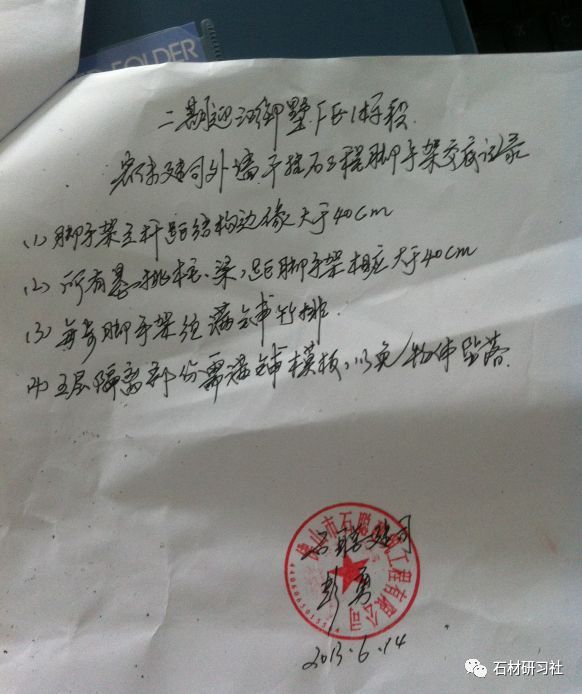 FOLDER
二期迎江御墅F区1标段
外墙干挂石工程脚手架交底记录
(1)脚手架立杆距结构边缘大于40cm
(2)所有柱、梁,距脚手架相应大于40cm
(3)每步脚手架须满铺竹排.
(4)五层隔离部份需满铺模板,以免物体坠落.
佛山市石聪工程有限公司
石聪公司
彭勇
2013.6.14
石材研习社